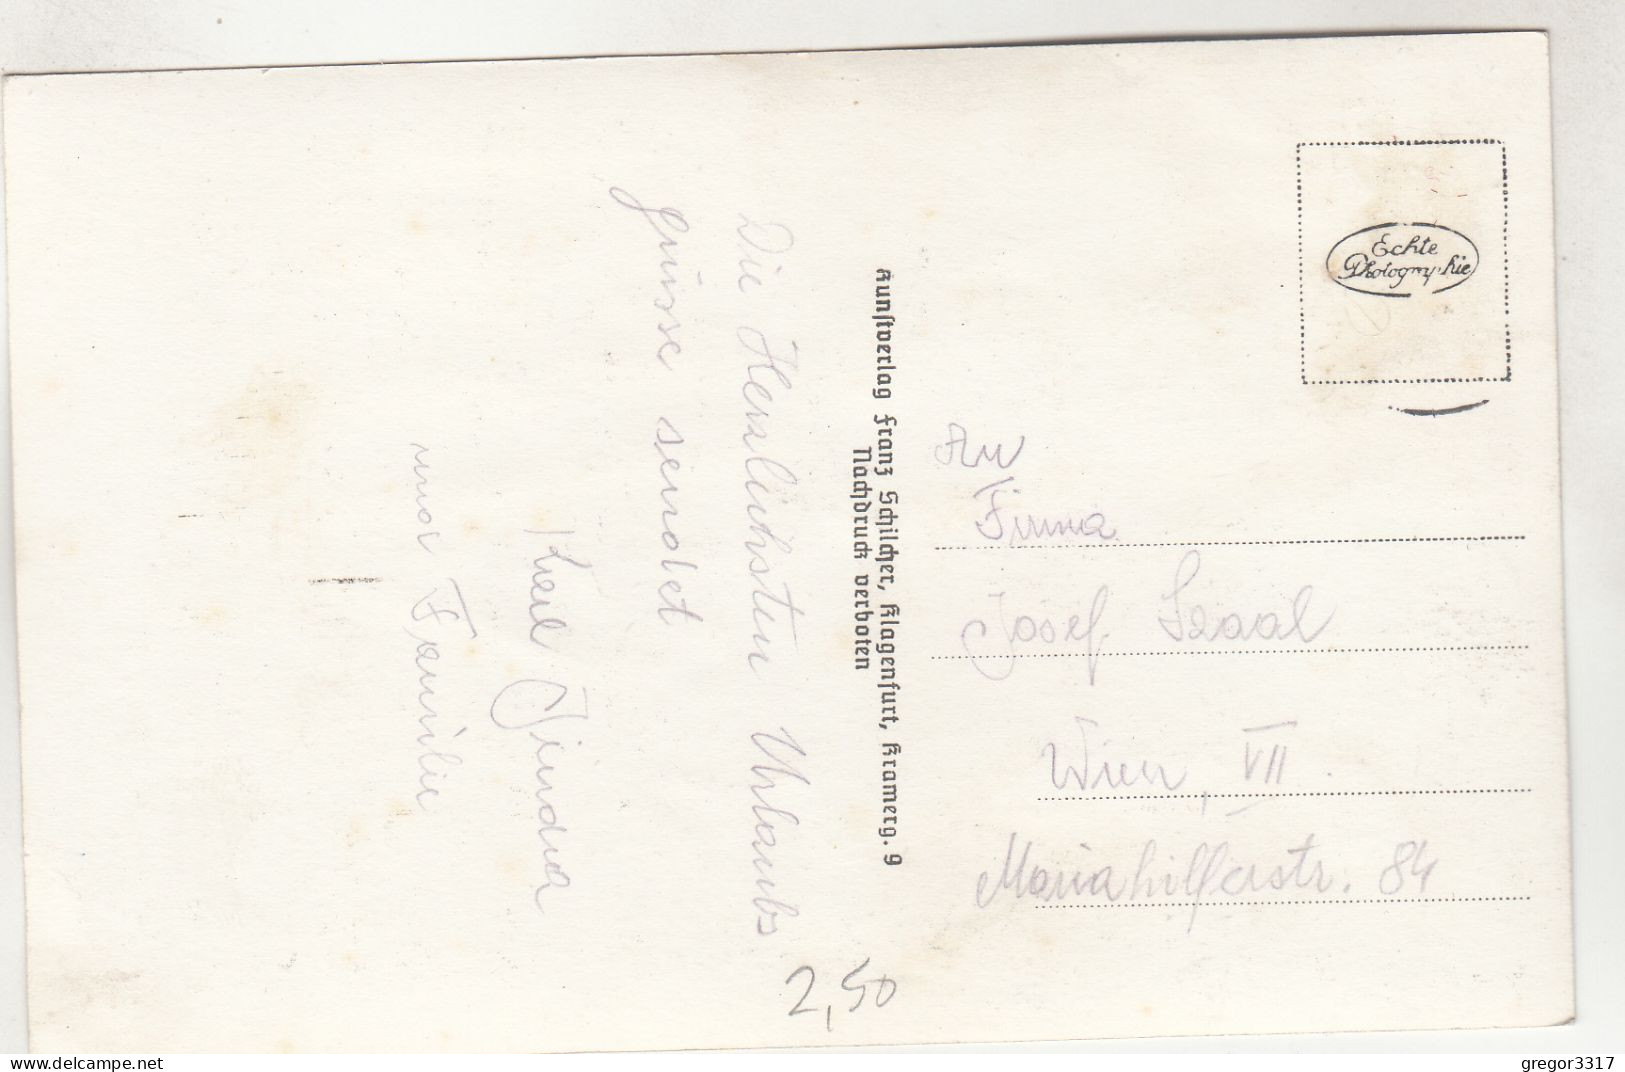 Die Herzlichsten Urlaubs
grüsse sendet
Karl Jindra
und Familie
Kunstverlag Franz Schilcher, Klagenfurt, Kramerg. 9
Nachdruck verboten
Echte
Photographie
An
Firma
Josef
Wien, VII.
Mariahilferstr. 84
2,50
delcampe.net
gregor3317